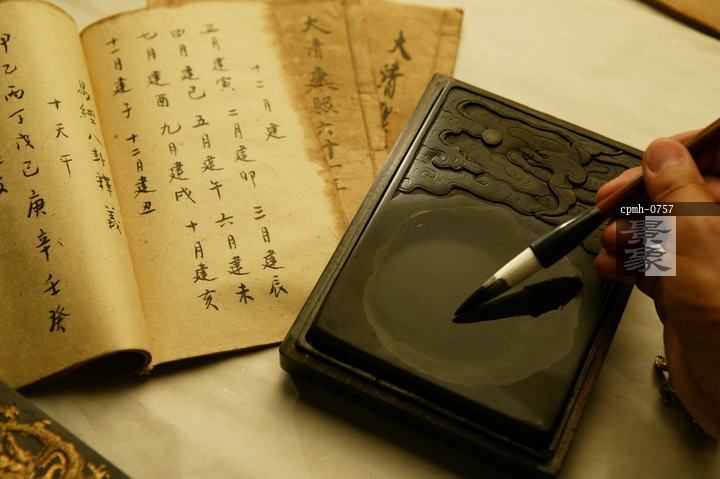 大清
大清康熙六十一
十二月建
三月建寅 二月建卯 三月建辰
四月建巳 五月建午 六月建未
七月建酉 九月建戌 十月建亥
十一月建子 十二月建丑
易經八卦釋義
十天干
甲乙丙丁戊己庚辛壬癸
cpmh-0757
景象